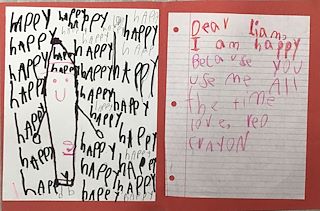 hAPPY hAPPY hAPPY
hAPPY hAPPY hAPPY
hAPPY hAPPY hAPPY
hAPPY hAPPY hAPPY
hAPPY hAPPY
hAPPY hAPPY
hAPPY hAPPY
hAPPY hAPPY
hAPPY hAPPY
hAPPY hAPPY
Dear Liam,
I am happy
Because YOU
use me All
the time
love, red
crAYON